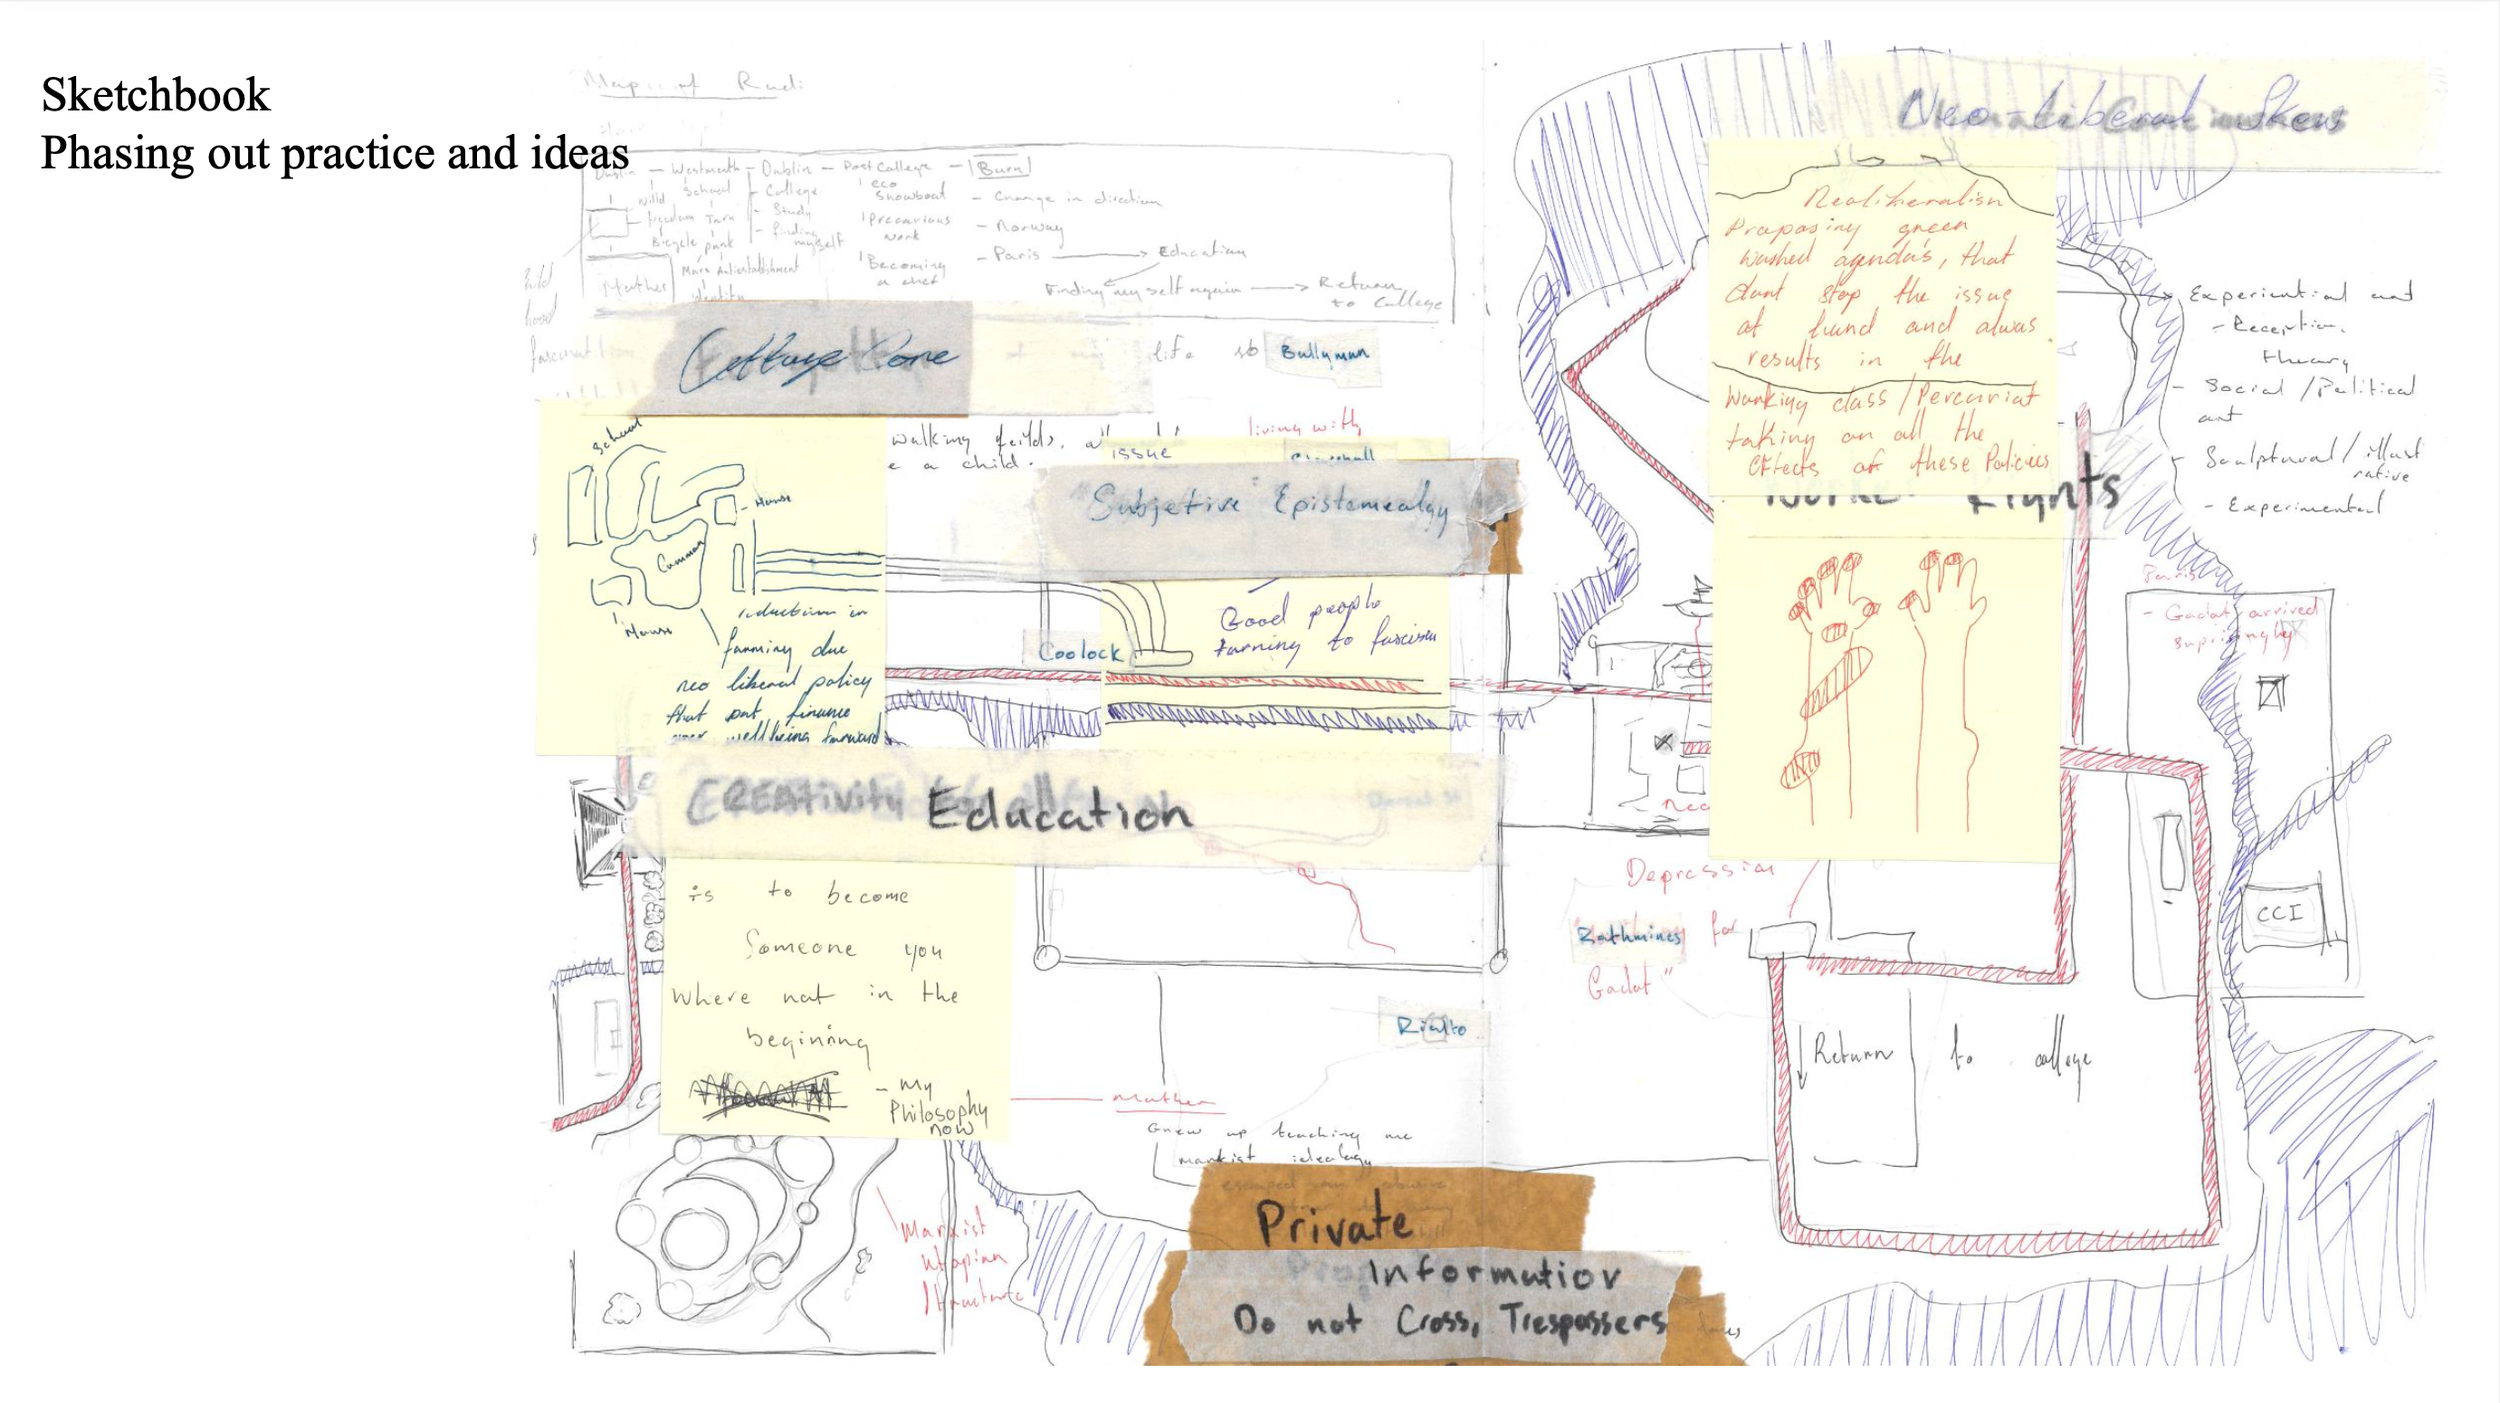 Sketchbook
Phasing out practice and ideas
Map of Rudi
Dublin — Westmeath — Dublin — Post College — Burn
School
College
eco
Snowboat
- Change in direction
Willd
freedom
Turn
punk
- Study
- finding
myself
Precarious
work
- Norway
Bicycle
- Paris → Education
Mother
More Antiestablishment
identity
Becoming
a chef
Finding my self again → Return
to College
hood
life
Ballymun
walking feilds,
e a child.
living with
issue
School
House
Common
House
reduction in
farming due
neo liberal policy
that put finance
over wellbeing forward
"Subjetive" Epistemealgy
Coolock
Good people
turning to fascism
CREAtivity
Education
is to become
Someone you
where not in the
beginning
- My
Philosophy
now
mother
Grew up teaching me
marxist idealagy
Marxist
utopian
Structure
Private
Information
Do not Cross, Trespassers
Rialto
Neo-liberal Skew
Neoliberalism
Proposing green
washed agenda's, that
dont stop the issue
at hand and alwas
results in the
Working class/Percariat
taking on all the
Effects of these Policies
Worker Rights
Experiential art
- Reception
theory
- Social / Political
art
- Sculptural / illust
rative
- Experimental
Paris
- Gadat arrived
suprisingly
CCI
Depression
Rathmines for
Gadat"
Return to college